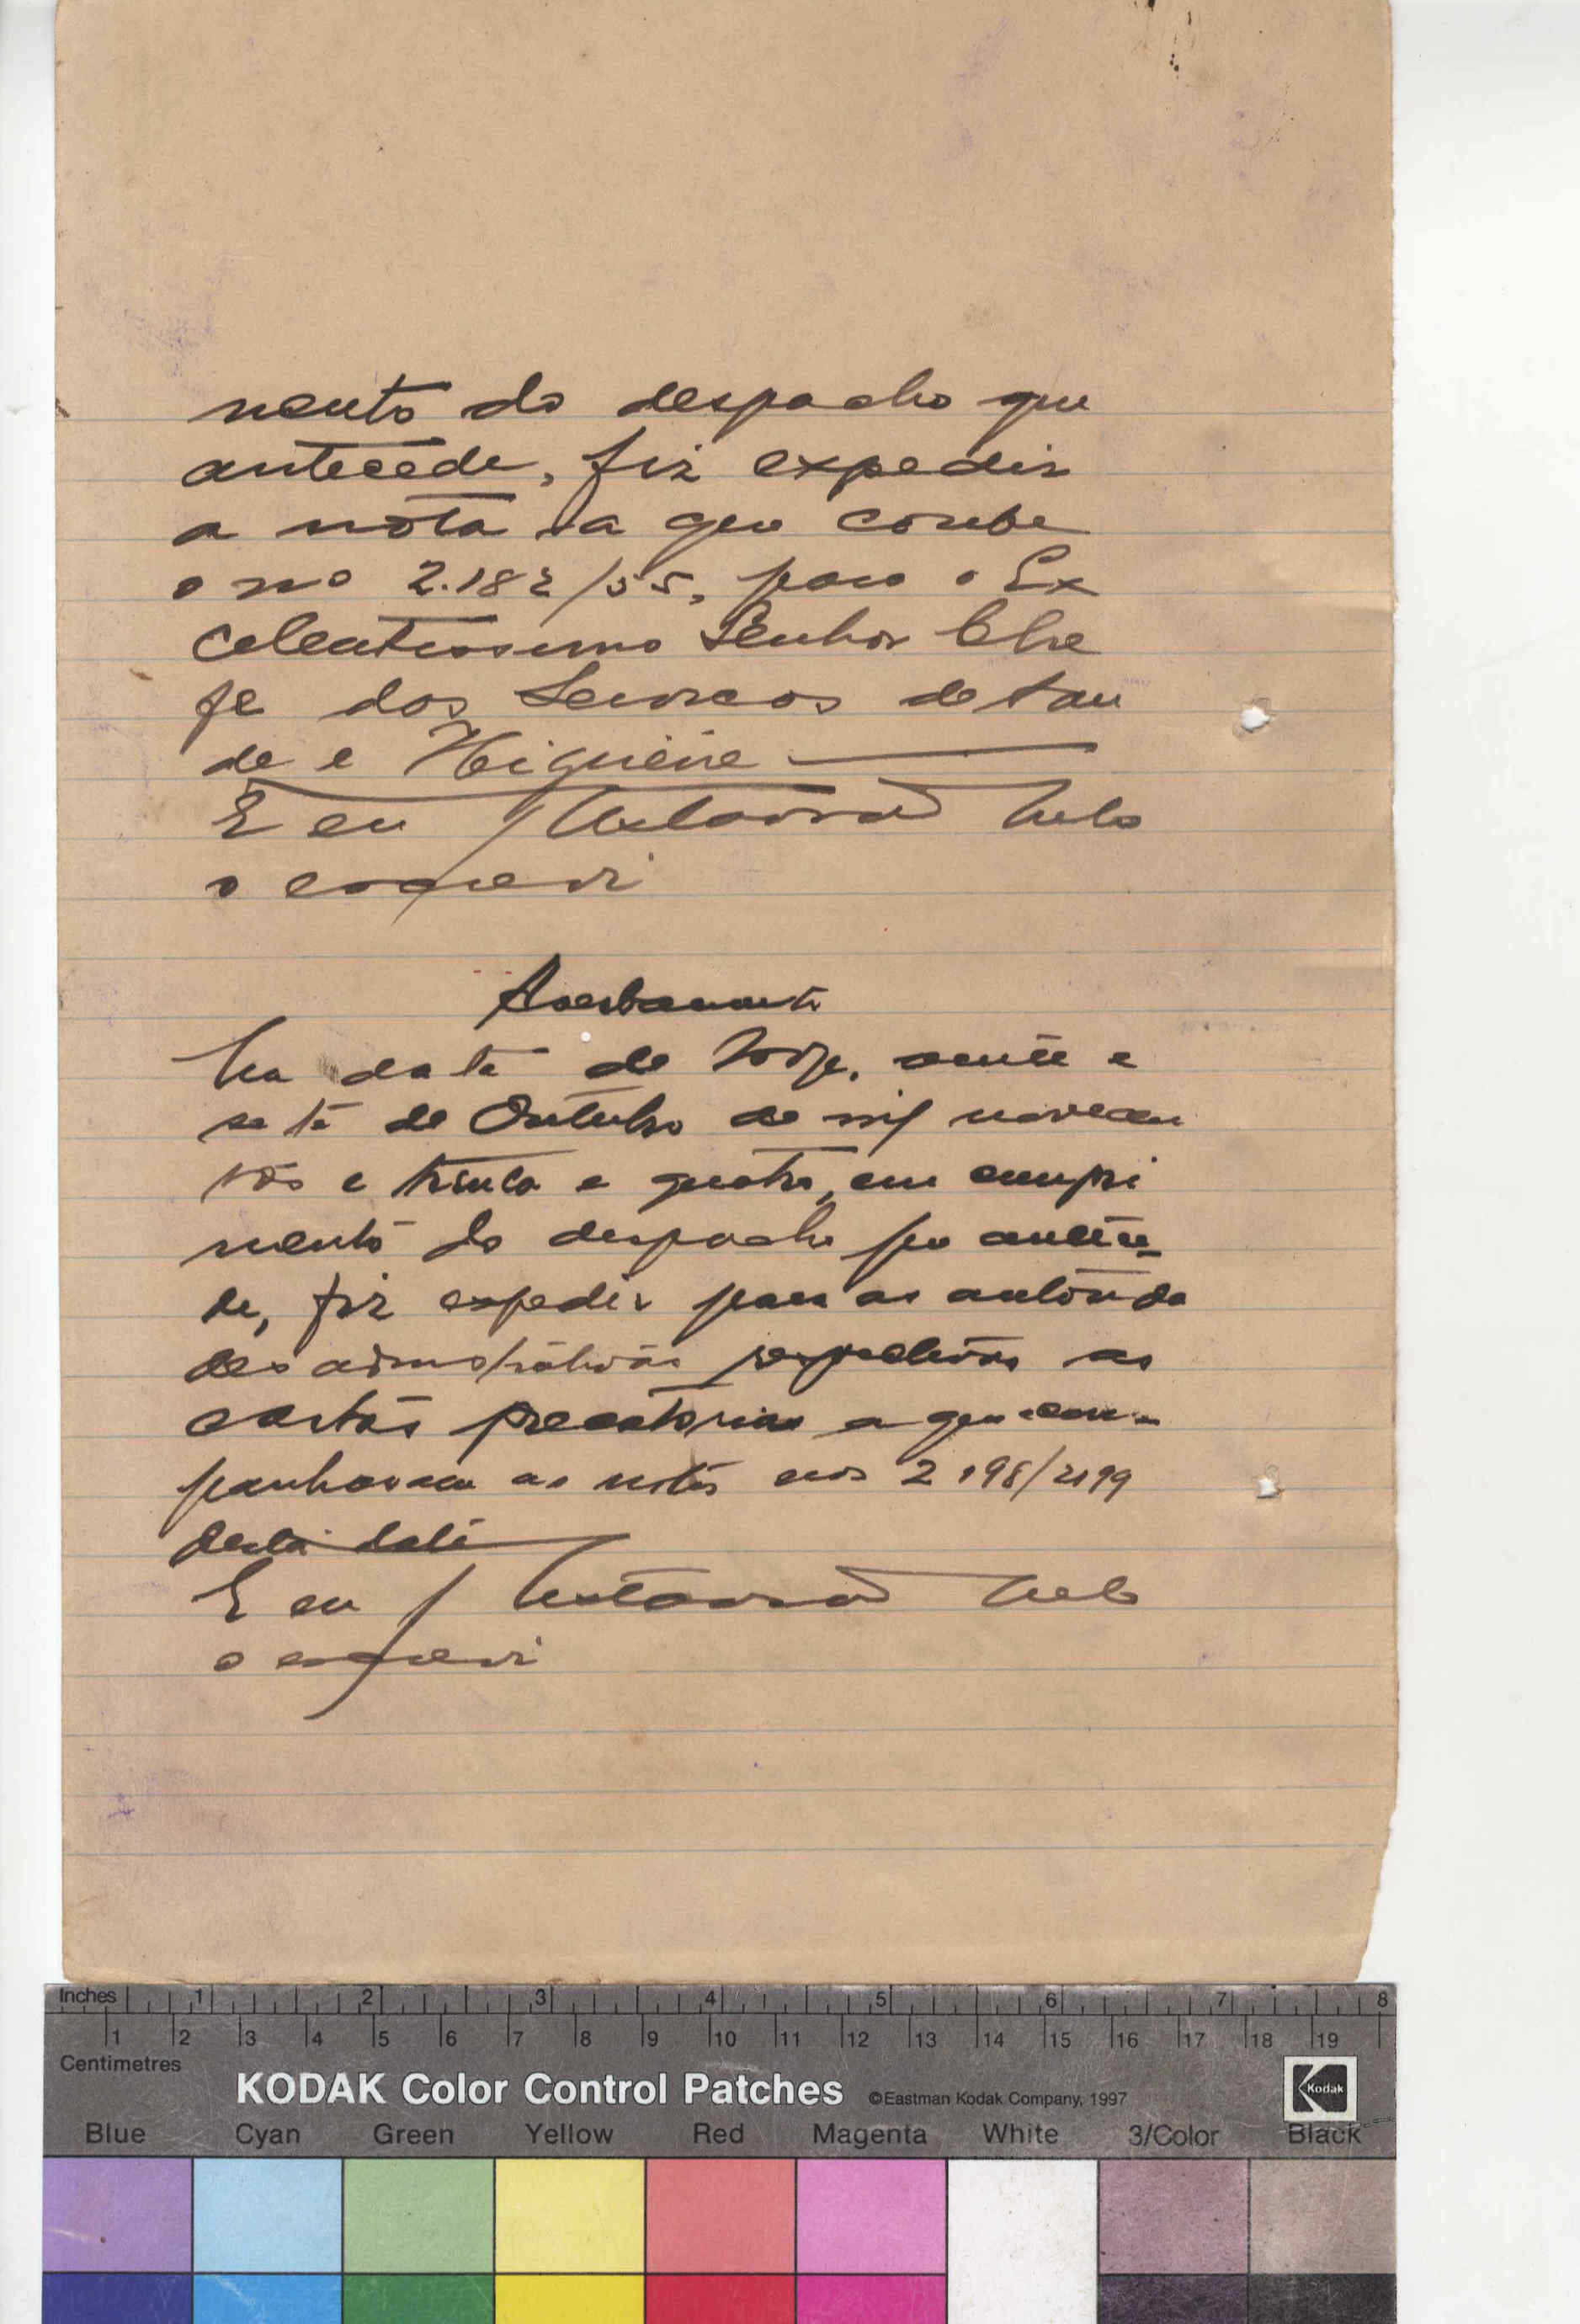 mento do despacho que
antecede, fiz expedir
a nota a que coube
o no 2.182/35, para o Ex
celentissimo Senhor Che
fe dos Servicos de Sau
de e Higiene
E eu Melo
o escrevi
Averbamento
Na data de hoje, vinte e
sete de Outubro de mil novecen
tos e trinta e quatro, em cumpri
mento do despacho que antece-
de, fiz expedir para as autorida
des administrativas respectivas as
cartas precatorias a que acom-
panhavam as notas nos 2198/2199
desta data
E eu Melo
o escrevi
Inches 1 2 3 4 5 6 7 8
1 2 3 4 5 6 7 8 9 10 11 12 13 14 15 16 17 18 19
Centimetres
KODAK Color Control Patches ©Eastman Kodak Company, 1997 Kodak
Blue Cyan Green Yellow Red Magenta White 3/Color Black